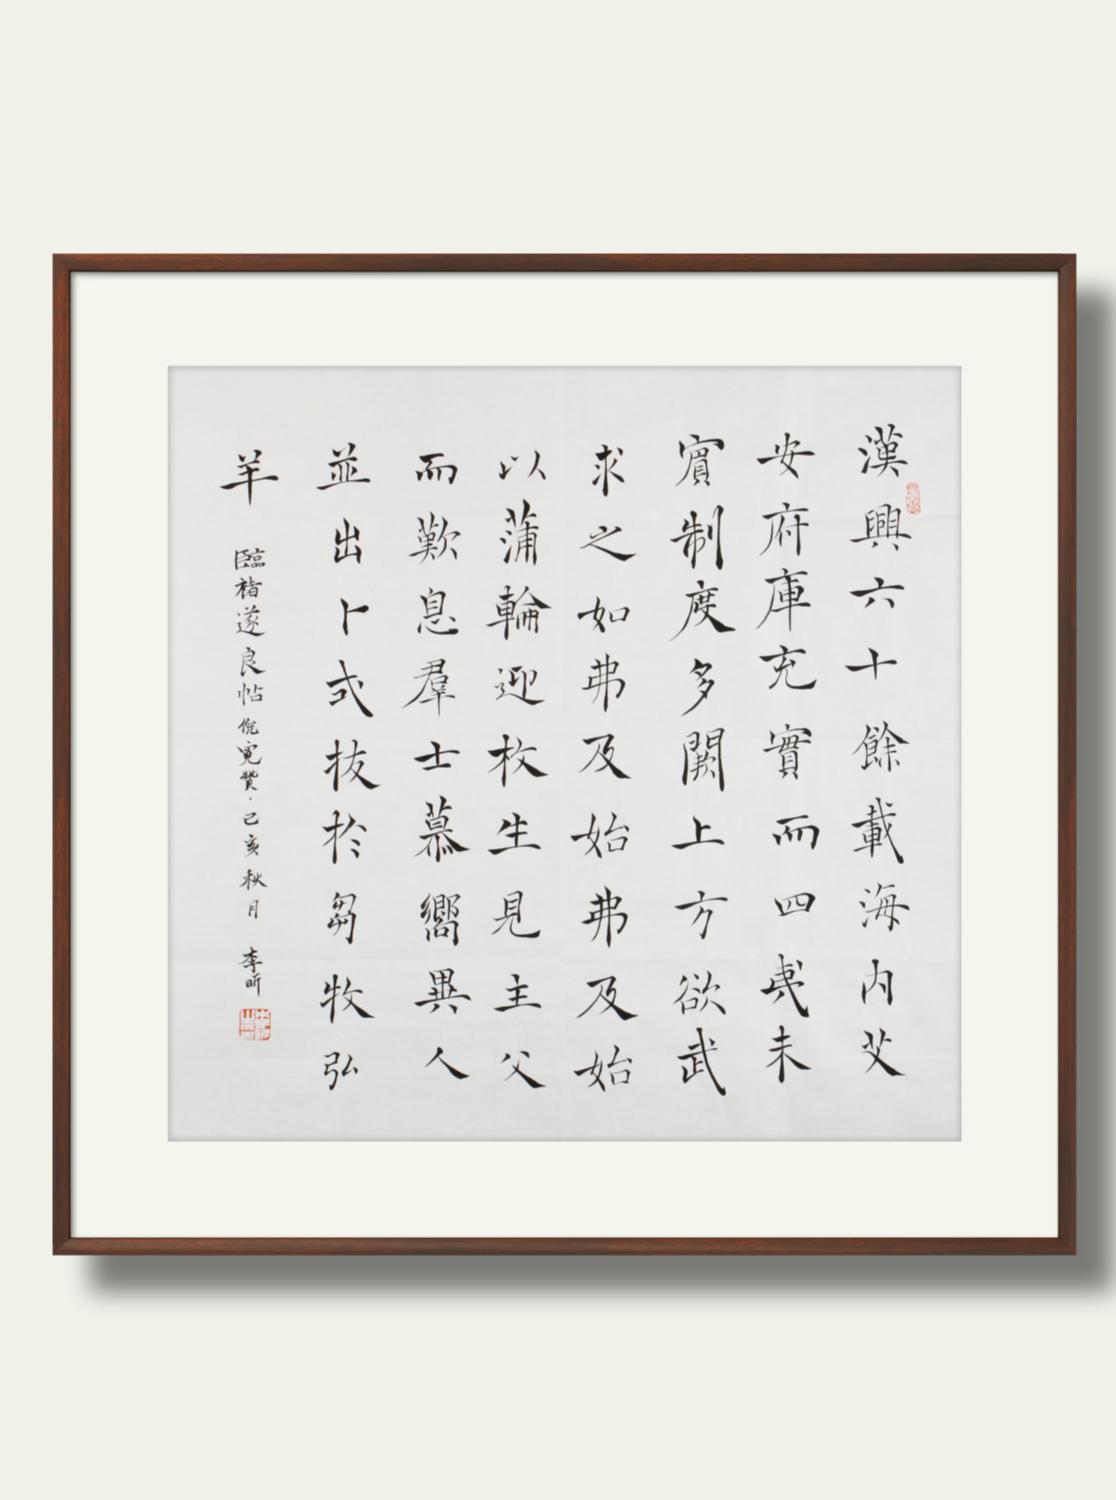 漢興六十餘載海內艾
安府庫充實而四夷未
賓制度多闕上方欲武
求之如弗及始弗及始
以蒲輪迎枚生見主父
而歎息羣士慕嚮異人
並出卜式拔於芻牧弘
羊
臨褚遂良帖倪寬贊己亥秋月 李昕